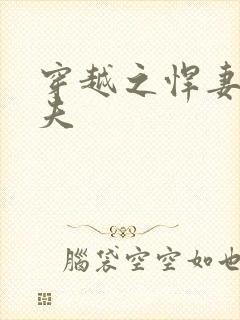 穿越之悍妻
夫
腦袋空空如也